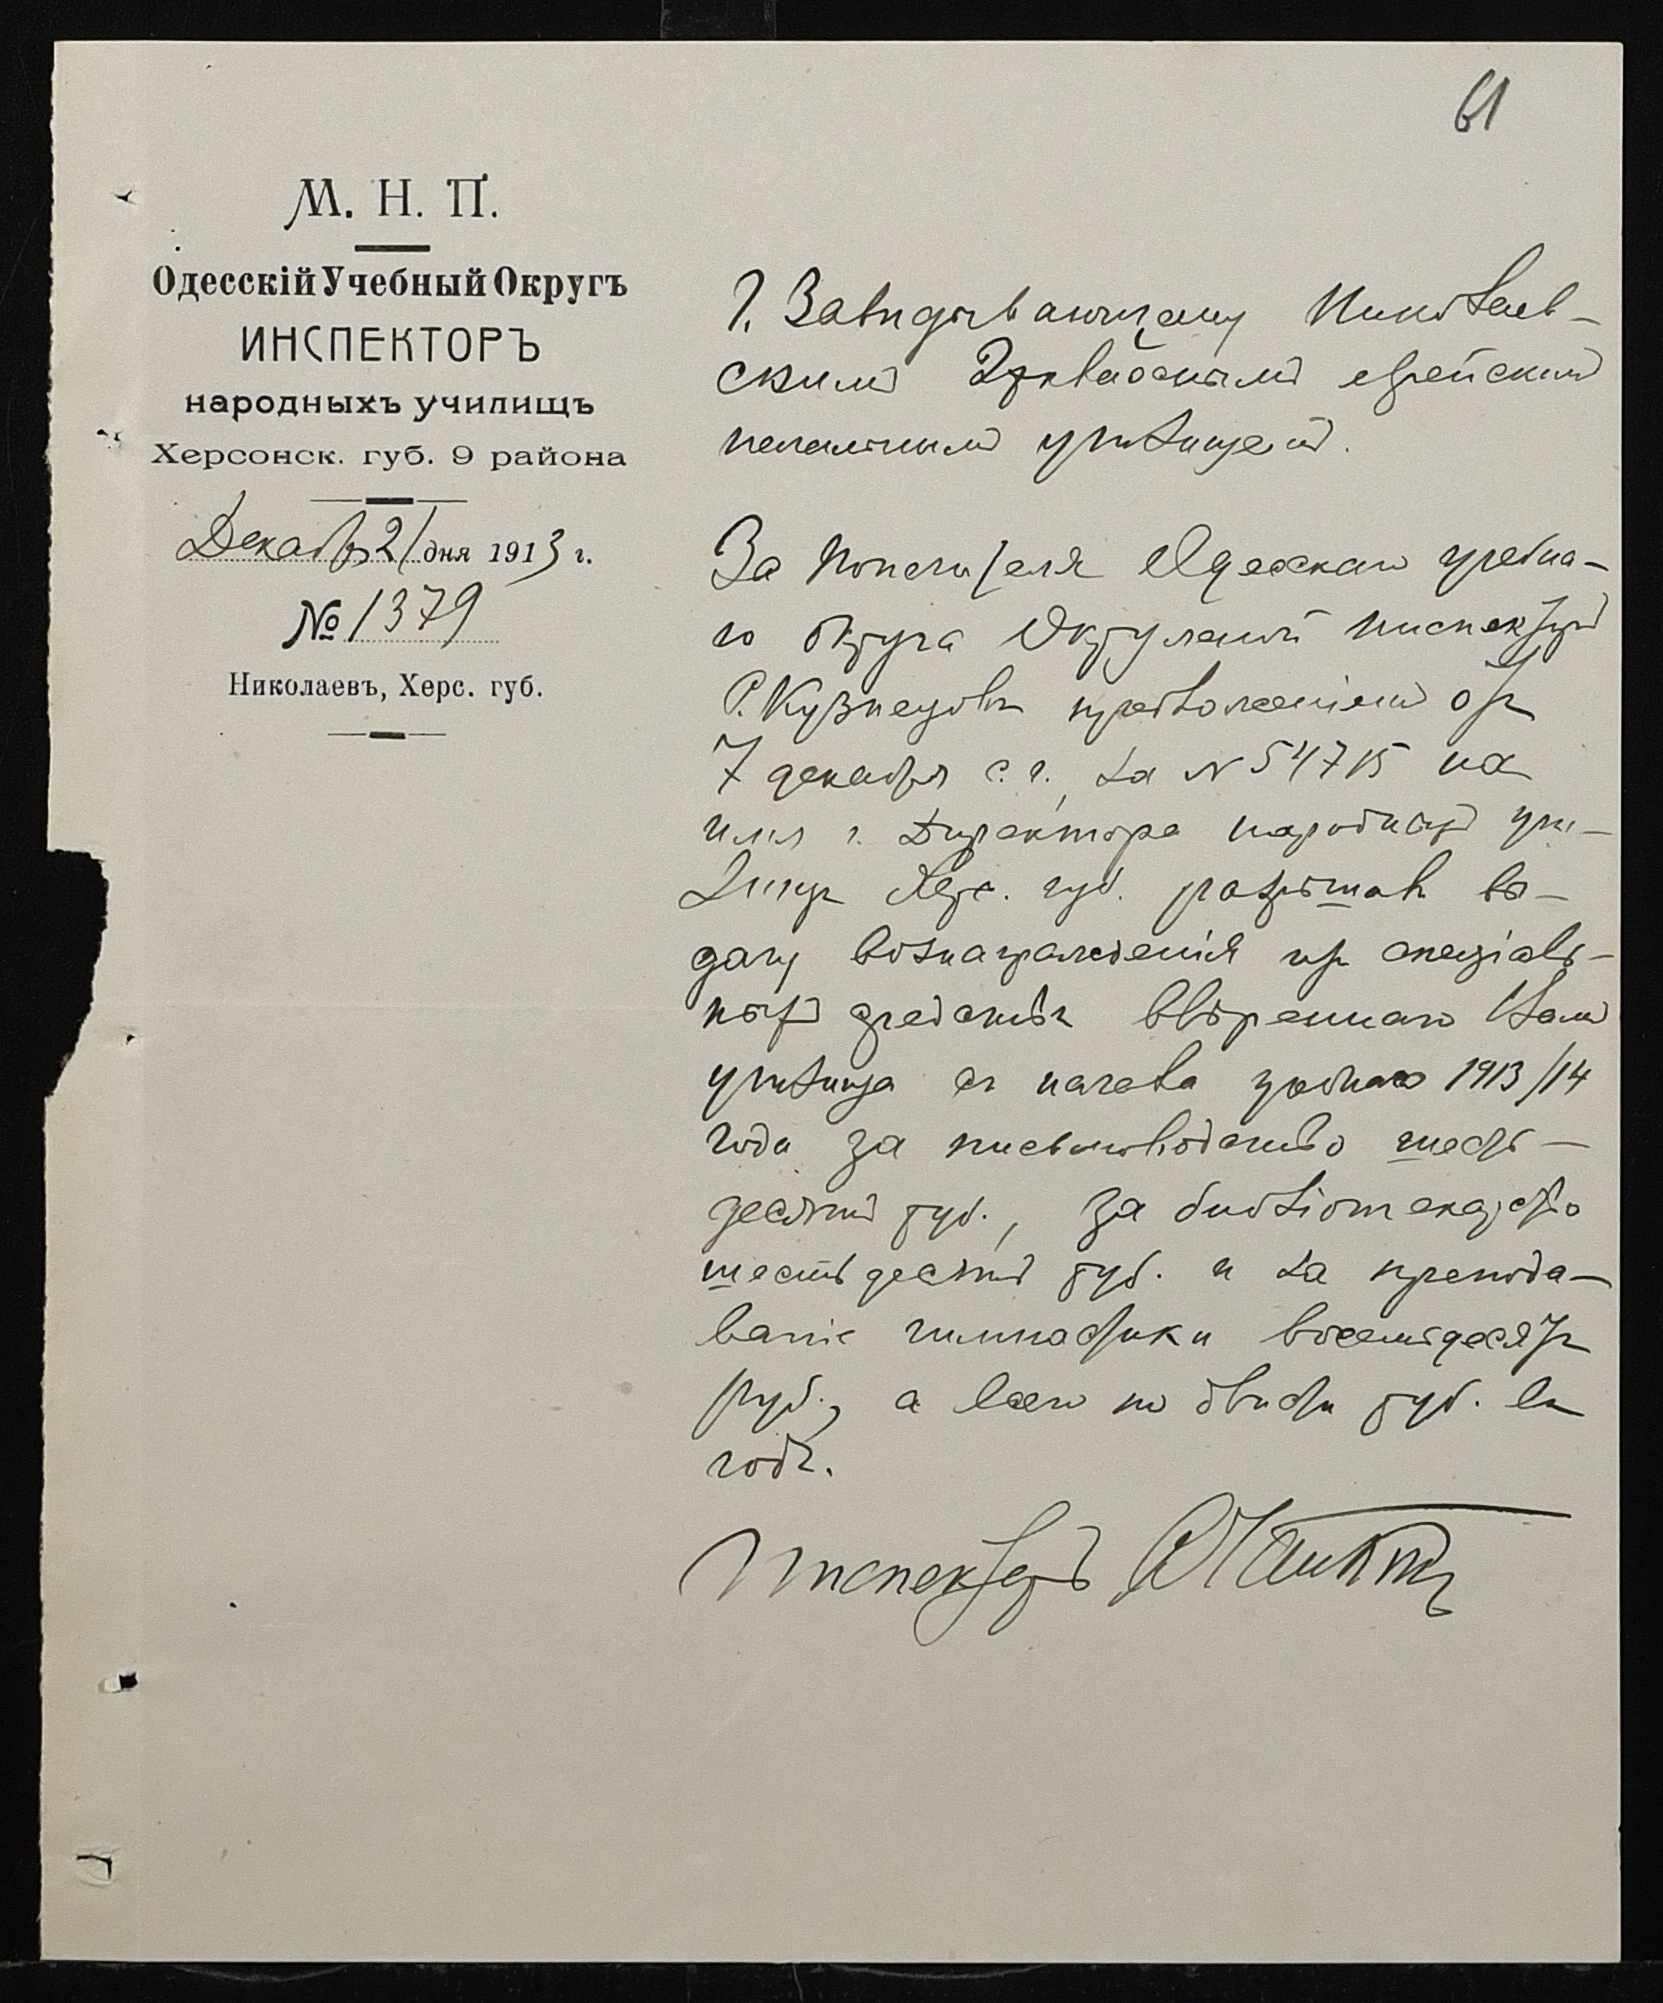 61
М. Н. П.
Одесскій Учебный Округъ
ИНСПЕКТОРЪ
народныхъ училищъ
Херсонск. губ. 9 района
Декабр 21 дня 1913 г.
№ 1379
Николаевъ, Херс. губ.
Г. Завѣдывающему Николаев-
скимъ 2х классным еврейским
начальнымъ училищемъ.
За Попечителя Одесскаго учебна-
го Округа Окружной Инспекторъ
Р. Кузнецовъ предложеніемъ отъ
7 декабря с. г. за № 54715 на
имя г. Директора народныхъ учи-
лищъ Херс. губ. разрѣшилъ вы-
дачу вознагражденія изъ спеціаль-
ныхъ средствъ ввѣреннаго Вамъ
училища съ начала учебнаго 1913/14
года за письмоводство шесть-
десятъ руб., за библіотекарство
шестьдесятъ руб. и за препода-
ваніе гимнастики восемьдесятъ
руб., а всего по двѣсти руб. въ
годъ.
Инспекторъ